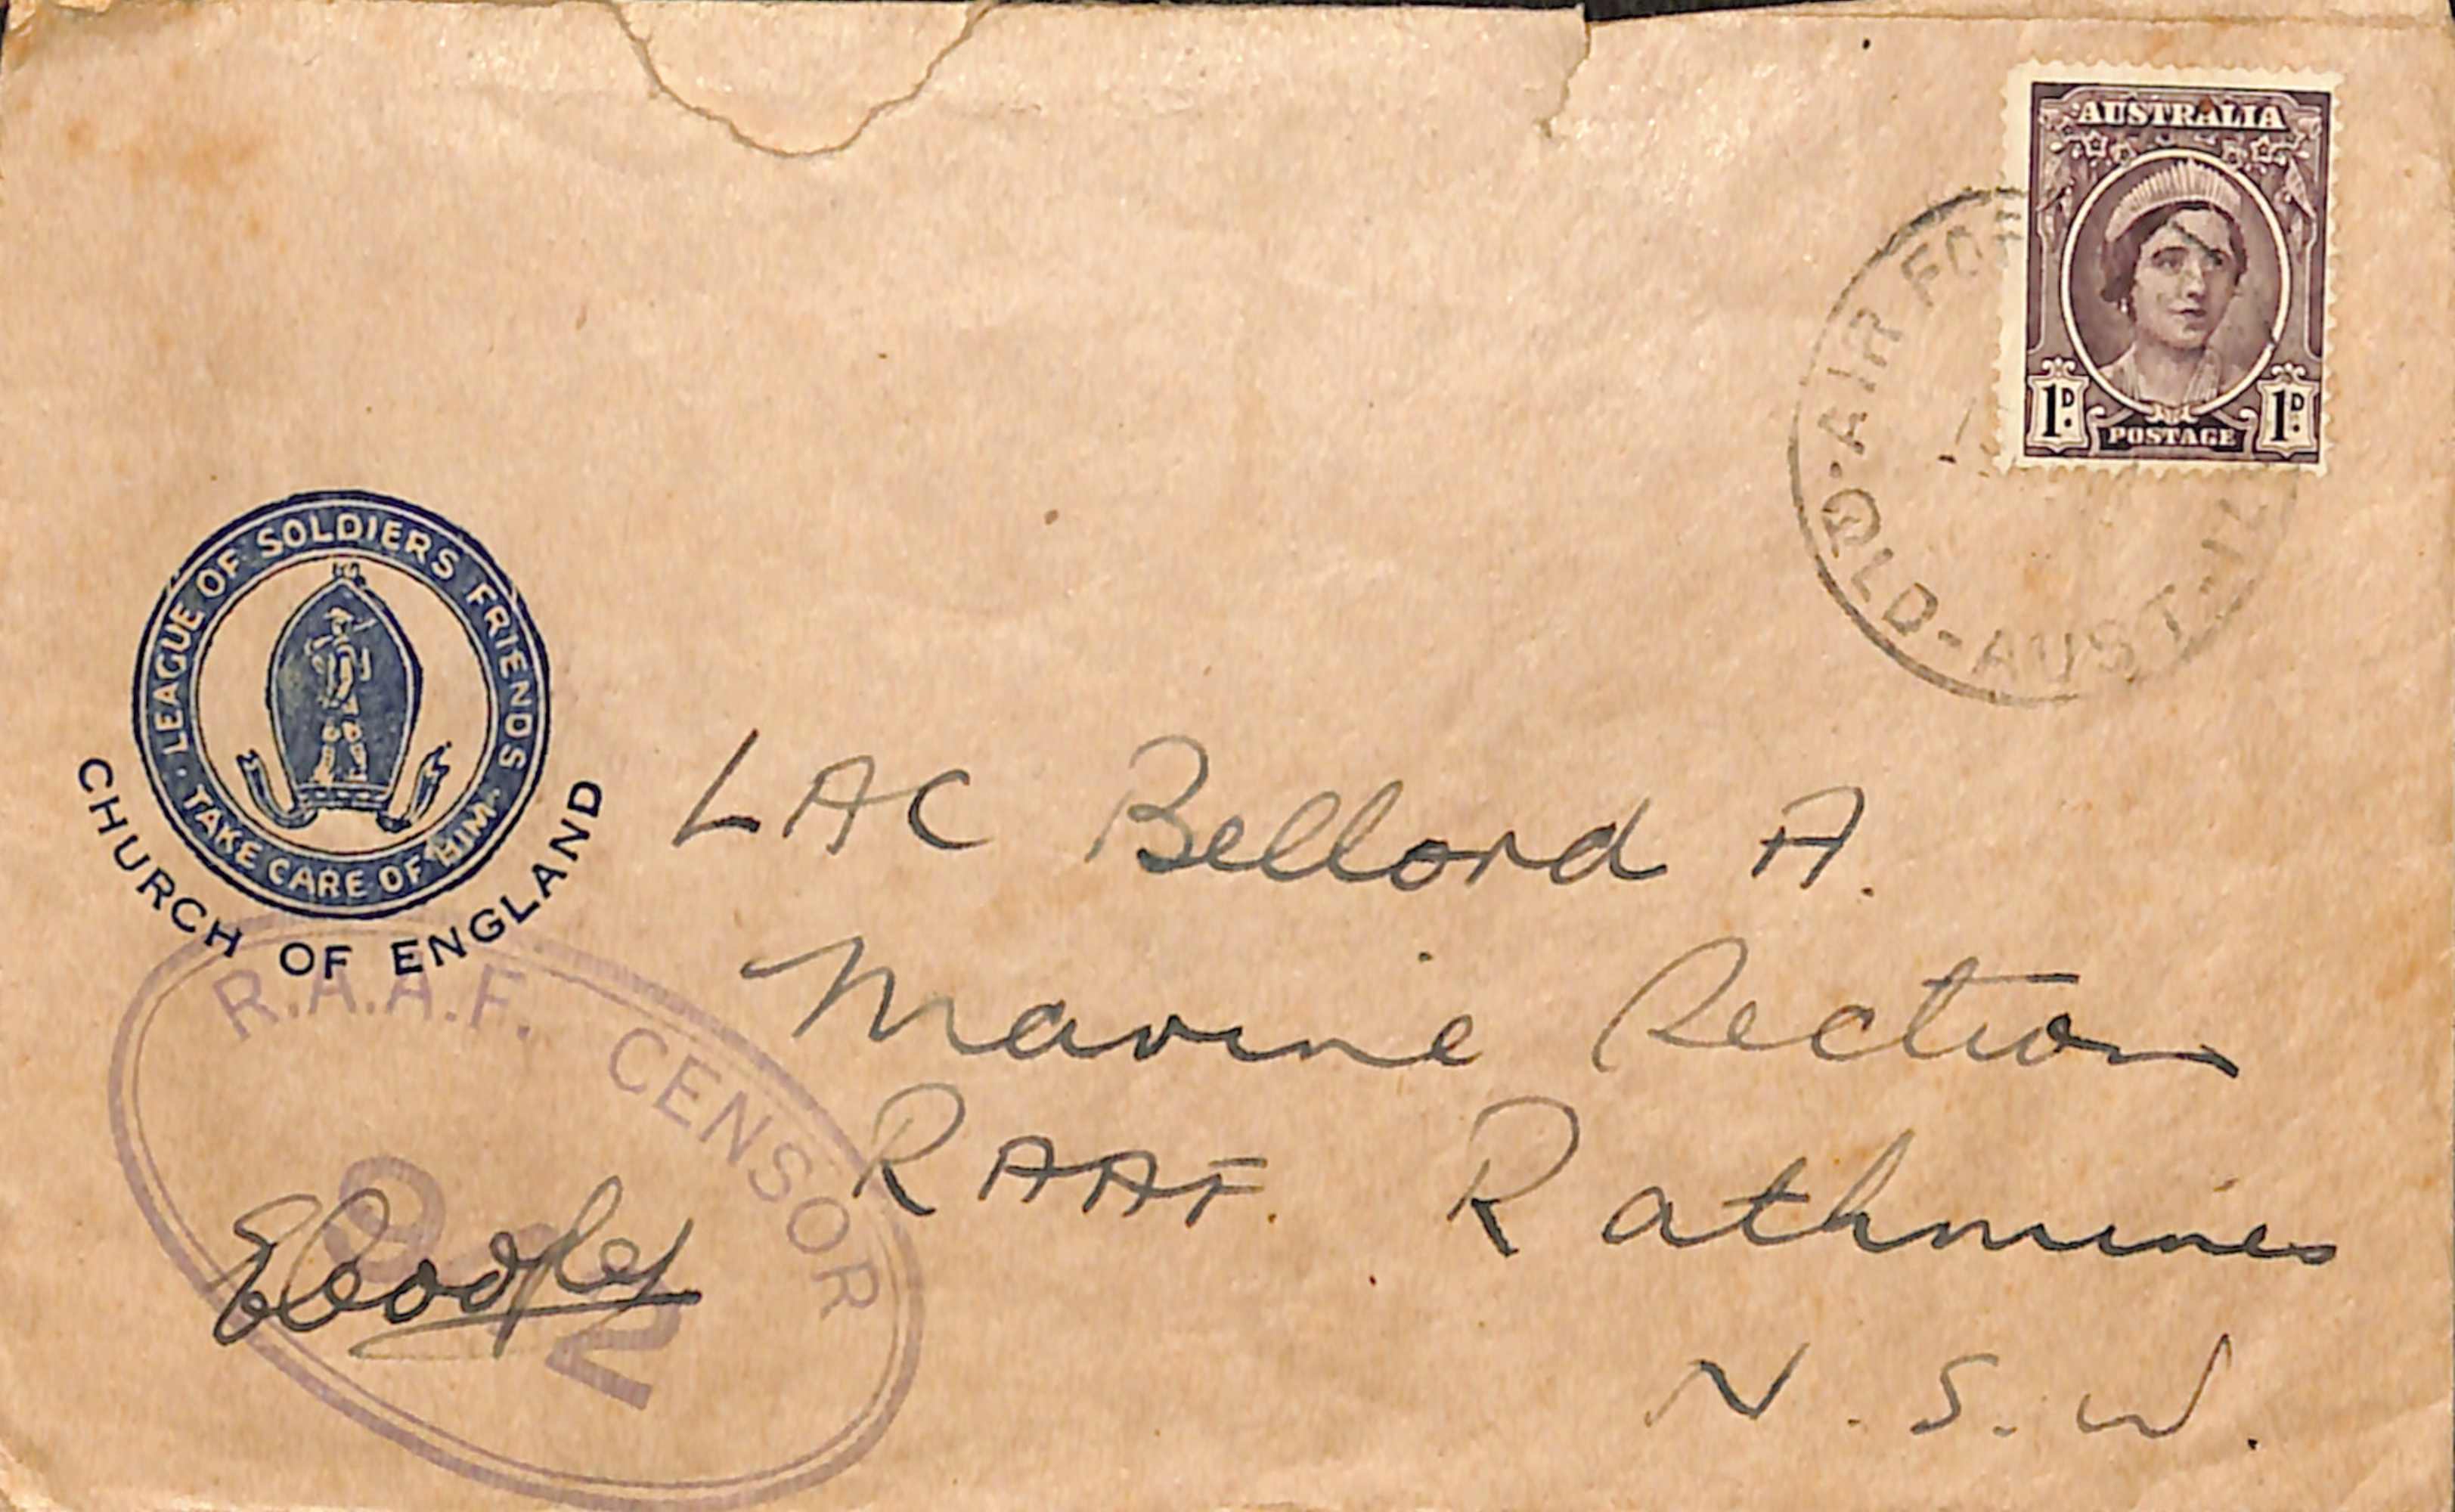 AUSTRALIA
1D. POSTAGE 1D.
AIR FOR
QLD-AUST-
· LEAGUE OF SOLDIERS FRIENDS ·
TAKE CARE OF HIM
CHURCH OF ENGLAND
LAC Bellord A.
Marine Section
RAAF. Rathmines
N.S.W.
R.A.A.F. CENSOR